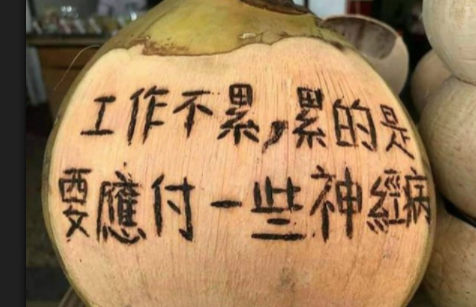 工作不累,累的是
要應付一些神經病